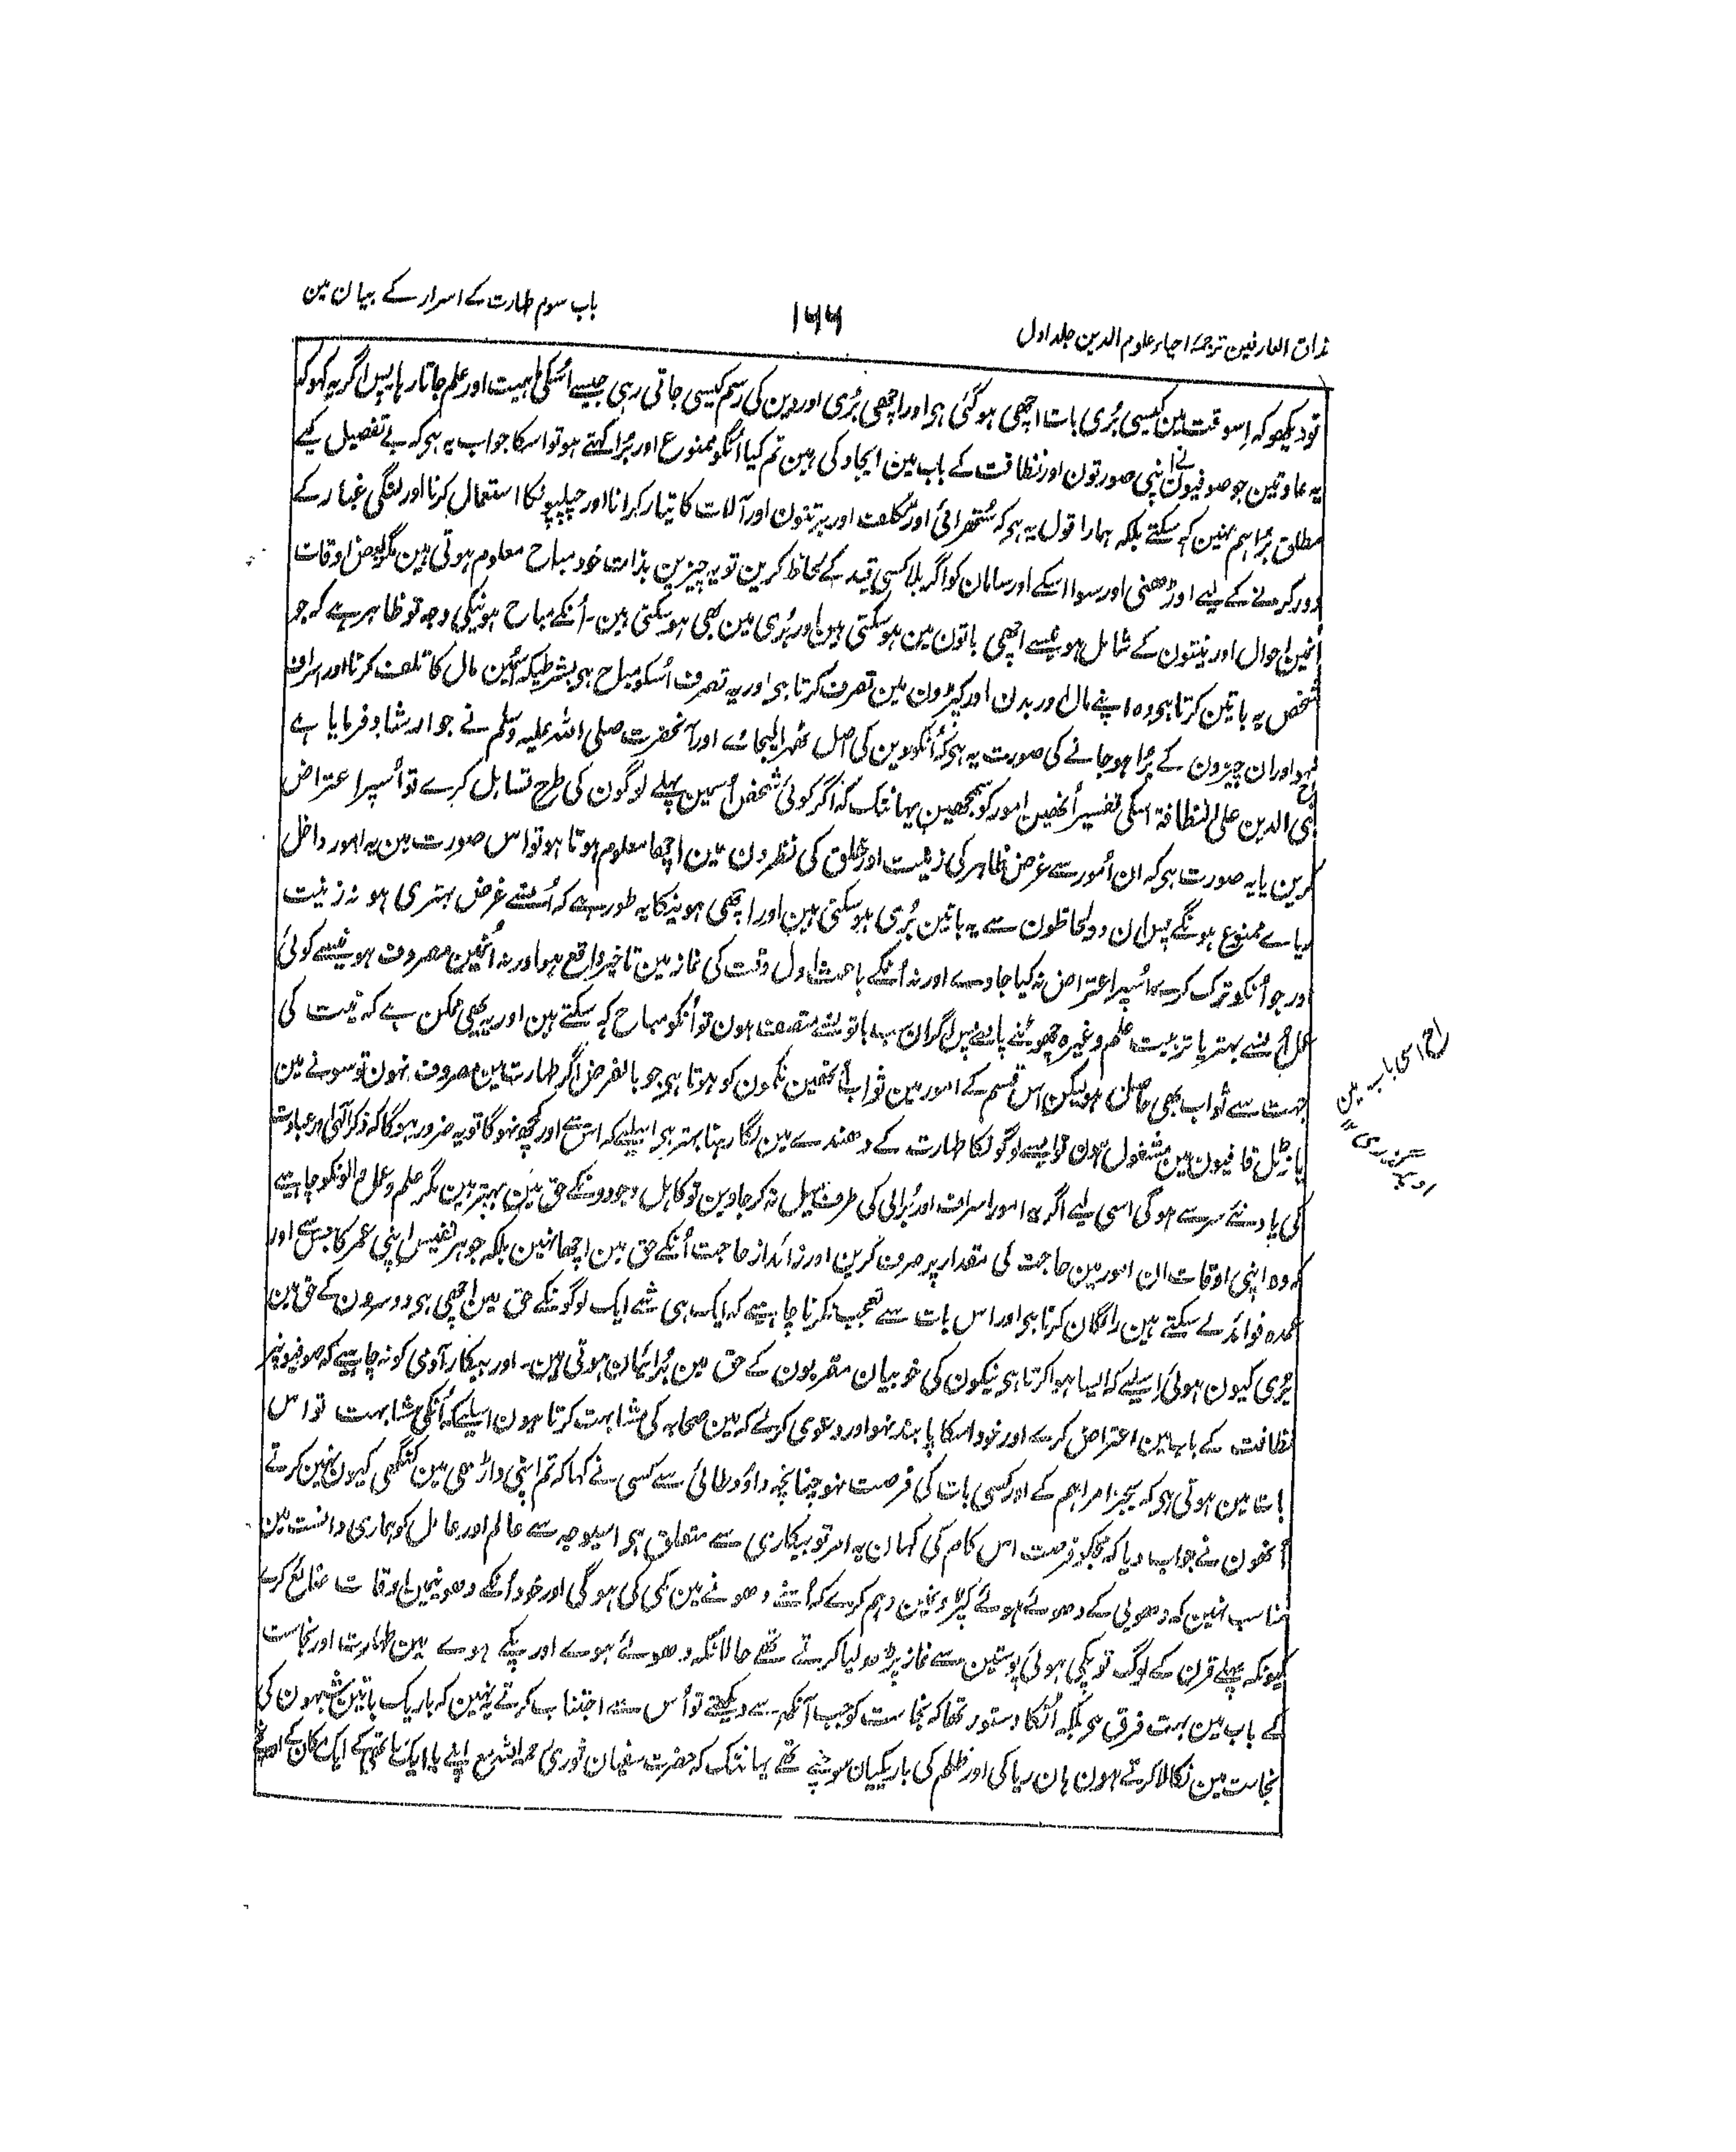 مذاق العارفین ترجمۂ احیاء علوم الدین جلد اول
۱۶۶
باب سوم طہارت کے اسرار کے بیان مین
تو دیکھو کہ اِسوقت مین کیسی بُری بات اچھی ہوگئی ہی اور اچھی بُری اور دین کی رسم کیسی جاتی رہی جیسے اُسکی ماہیت اور علم جاتا رہا پس اگر یہ کہو کہ
یہ عادتین جو صوفیون نے اپنی صورتون اور نظافت کے باب مین ایجاد کی ہین تم کیا انکو ممنوع اور بُرا کہتے ہو تو اسکا جواب یہ ہی کہ بے تفصیل کیے
مطلق بُرا ہم نہین کہہ سکتے بلکہ ہمارا قول یہ ہی کہ سُتھرائی اور تکلف اور برتنون اور آلات کا تیار کرانا اور چپلیونکا استعمال کرنا اور لنگی غبار کے
دور کرنے کے لیے اوڑھنی اور سوا اسکے اور سامان کو اگر بلا کسی قید کے لحاظ کرین تو یہ چیزین بذات خود مباح معلوم ہوتی ہین مگر بعض اوقات
اُنمین احوال اور نیتون کے شامل ہونیسے اچھی باتون مین ہوسکتی ہین اور بُری مین بھی ہوسکتی ہین ۔ اُنکے مباح ہونیکی وجہ تو ظاہر ہے کہ جو
شخص یہ باتین کرتا ہی وہ اپنے مال اور بدن اور کپڑون مین تصرف کرتا ہی اور یہ تصرف اُسکو مباح ہی بشرطیکہ اُسمین مال کا تلف کرنا اور اسراف
نہو اور ان چیزون کے بُرا ہوجانے کی صورت یہ ہی کہ اُنکو دین کی اصل ٹھہرا لیجائے اور آنحضرت صلی اللہ علیہ وسلم نے جو ارشاد فرمایا ہے
بنی الدین علی النظافۃ اسکی تفسیر اُنھین امور کو سمجھین یہانتک کہ اگر کوئی شخص اُسمین پہلے لوگون کی طرح تساہل کرے تو اُسپر اعتراض
کرین یا یہ صورت ہی کہ ان اُمور سے غرض ظاہر کی زینت اور خلق کی نظرون مین اچھا معلوم ہوتا ہو تو اس صورت مین یہ امور داخل
ریاے ممنوع ہونگے پس ان دو لحاظون سے یہ باتین بُری ہوسکتی ہین اور اچھی ہونیکا یہ طور ہے کہ اُنسے غرض بہتری ہو نہ زینت
اور جو اُنکو ترک کرے اُسپر اعتراض نہ کیا جاوے اور نہ اُنکے باعث اول وقت کی نماز مین تاخیر واقع ہو اور نہ اُنمین مصروف ہونیسے کوئی
عمل اُن سے بہتر یا تربیت علم وغیرہ چھوٹنے پائے پس اگر ان سب باتونسے متصف ہون تو اُنکو مباح کہہ سکتے ہین اور یہ بھی ممکن ہے کہ نیت کی
جہت سے ثواب بھی حاصل ہو لیکن اس قسم کے امور مین ثواب اُنھین نکمون کو ہوتا ہی جو بالفرض اگر طہارت مین مصروف نہون تو سونے مین
یا زٹل قافیون مین مشغول ہون تو ایسے لوگونکا طہارت کے دھندے مین لگا رہنا بہتر ہی اسلیے کہ اس سے اور کچھ نہوگا تو یہ ضرور ہوگا کہ ذکر آلٰہی اور عبادت
کی یاد نئے سرے ہوگی اسی لیے اگر یہ امور اسراف اور بُرائی کی طرف میل نہ کرجاوین تو کاہل وجودونکے حق مین بہتر ہین مگر علم و عمل والونکو چاہیے
کہ وہ اپنی اوقات ان امور مین حاجت کی مقدار پر صرف کرین اور زائد از حاجت اُنکے حق مین اچھا نہین بلکہ جوہر نفیس اپنی عمر کا جس سے اور
عمدہ فوائد لے سکتے ہین رائگان کرنا ہی اور اس بات سے تعجب نکرنا چاہیے کہ ایک ہی شے ایک لوگونکے حق مین اچھی ہی دوسرون کے حق مین
بُری کیون ہوئی اسلیے کہ ایسا ہوا کرتا ہی نیکون کی خوبیان مقربون کے حق مین بُرائیان ہوتی ہین ۔ اور بیکار آدمی کو نہ چاہیے کہ صوفیونپر
نظافت کے باب مین اعتراض کرے اور خود اسکا پابند نہو اور دعوی کرے کہ مین صحابہ کی مشابہت کرتا ہون اسلیے کہ اُنکی مشابہت تو اس
بات مین ہوتی ہی کہ بجز امر اہم کے اور کسی بات کی فرصت نہو چنانچہ داؤد طائی سے کسی نے کہا کہ تم اپنی داڑھی مین کنگھی کیون نہین کرتے
اُنھون نے جواب دیا کہ مجکو فرصت اس کام کی کہان یہ امر تو بیکاری سے متعلق ہی اسیوجہ سے عالم اور عامل کو ہماری دانست مین
مناسب نہین کہ دھوبی کے دھوئے ہوئے کپڑونمین وہم کرے کہ اُسنے دھونے مین کمی کی ہوگی اور خود اُنکے دھونیمین اوقات ضائع کرے
کیونکہ پہلے قرن کے لوگ تو پکی ہوئی پوستین سے نماز پڑھ لیا کرتے تھے حالانکہ دھوئے ہوے اور پکے ہوے مین طہارت اور نجاست
کے باب مین بہت فرق ہی بلکہ اُنکا دستور تھا کہ نجاست کو جب آنکھ سے دیکھتے تو اُس سے اجتناب کرتے یہ نہین کہ باریک باتین شبہون کی
نجاست مین نکالا کرتے ہون ہان ریا کی اور ظلم کی باریکیان سوچتے تھے یہانتک کہ حضرت سفیان ثوری رحمہ اللہ مع اپنے ایک ساتھی کے ایک مکان کے
اسی باب مین